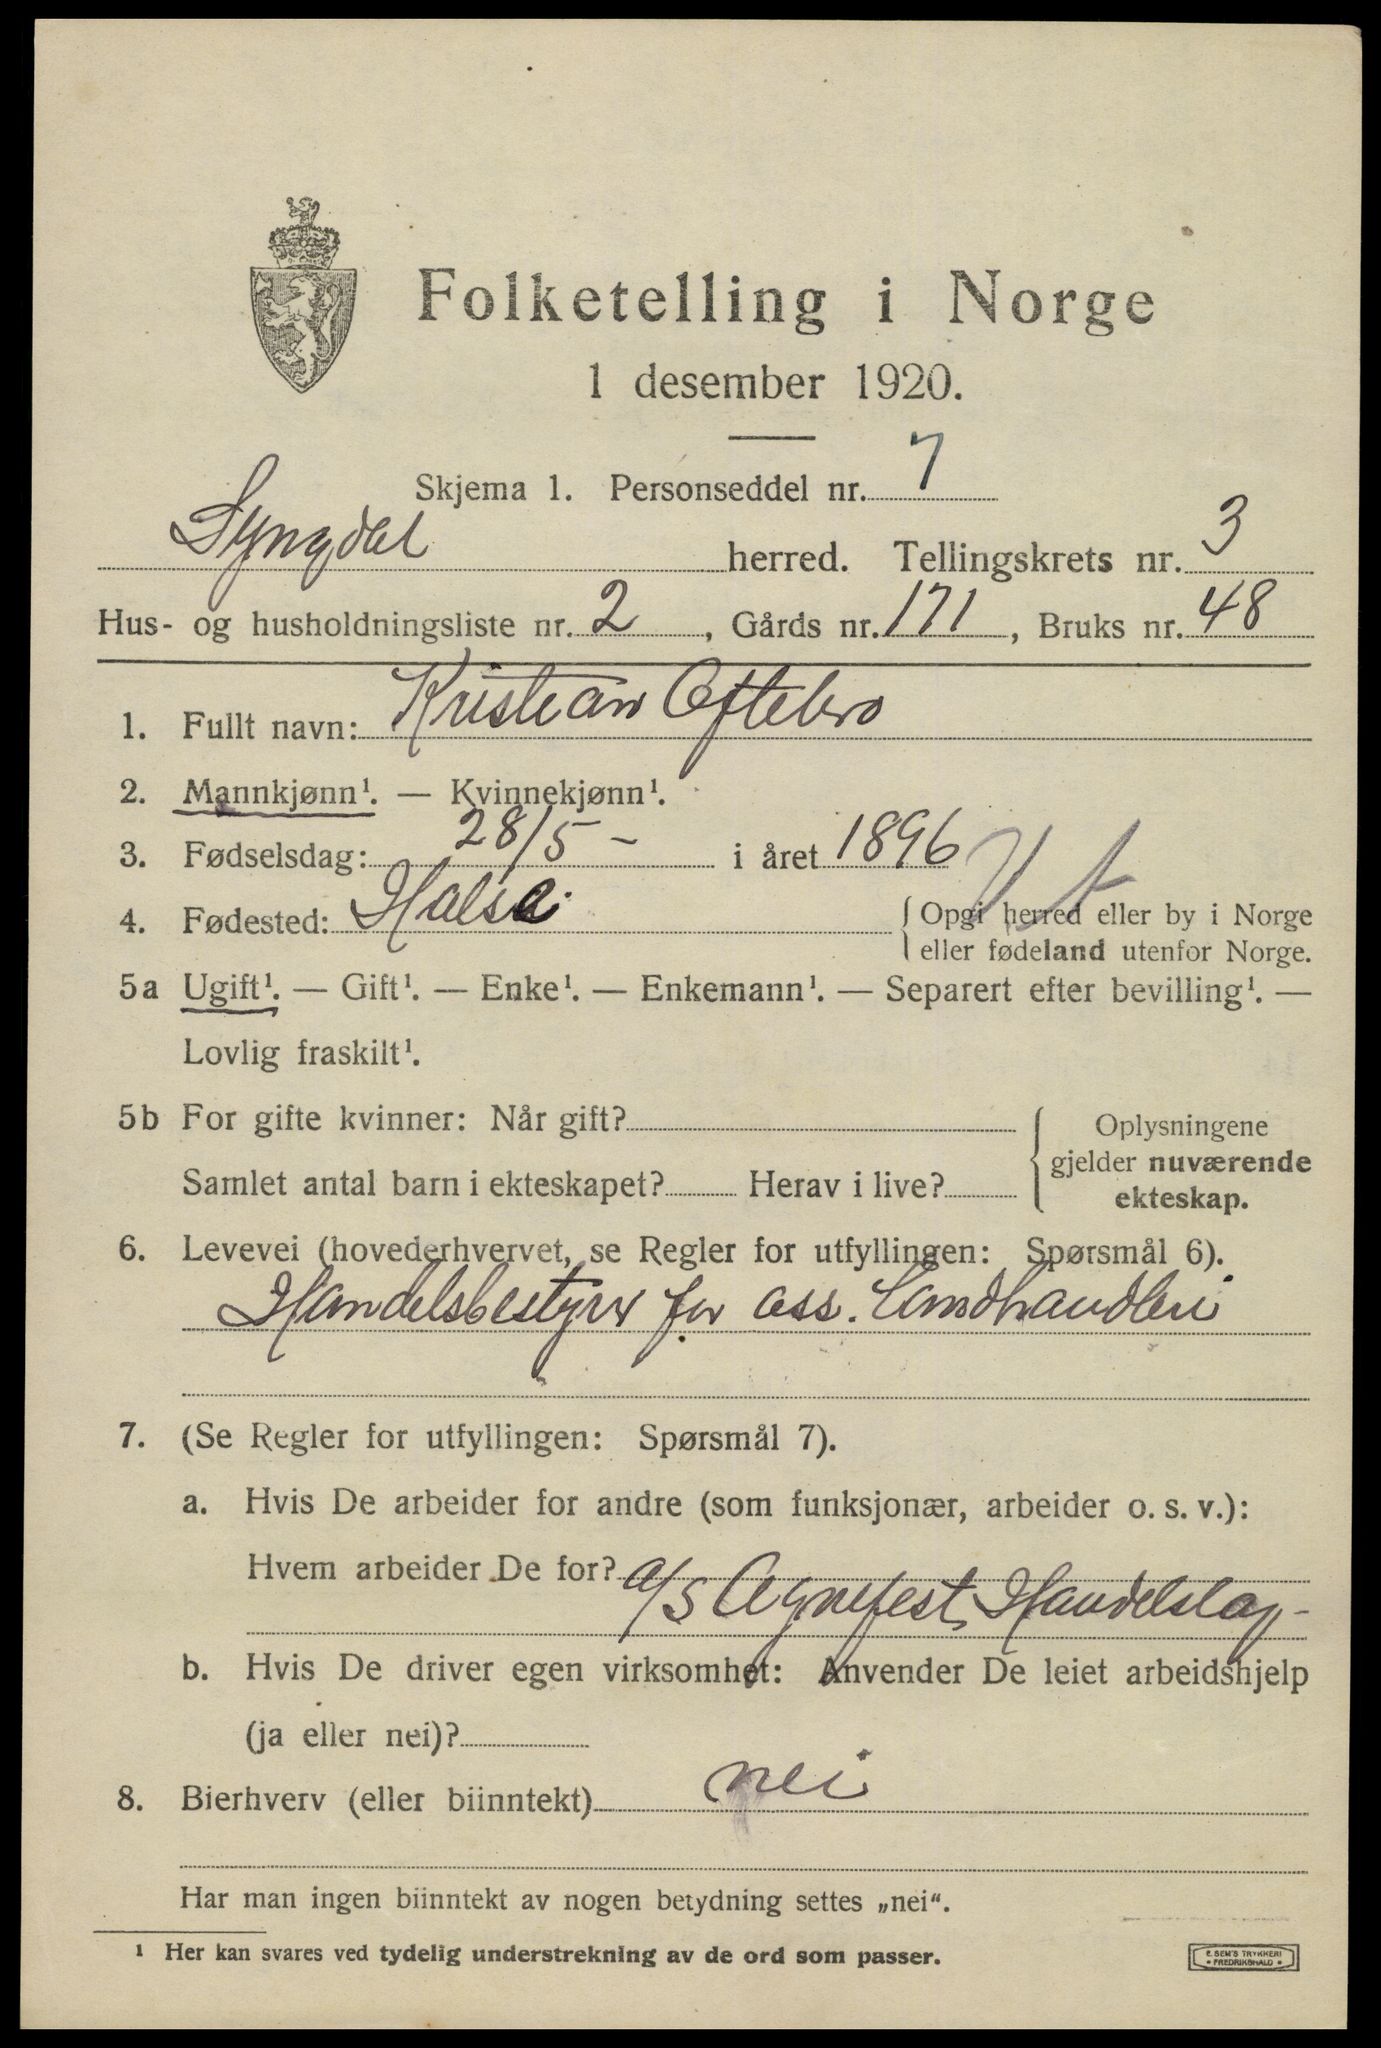 Folketelling i Norge
1 desember 1920.
Skjema 1. Personseddel nr. 7
Lyngdal herred. Tellingskrets nr. 3
Hus- og husholdningsliste nr. 2, Gårds nr. 171, Bruks nr. 48
1. Fullt navn: Kristian Oftebro
2. Mannkjønn¹. — Kvinnekjønn¹.
3. Fødselsdag: 28/5 - i året 1896
4. Fødested: Halse { Opgi herred eller by i Norge
eller fødeland utenfor Norge.
5a Ugift¹. — Gift¹. — Enke¹. — Enkemann¹. — Separert efter bevilling¹. —
Lovlig fraskilt¹.
5b For gifte kvinner: Når gift? { Oplysningene
gjelder nuværende
Samlet antal barn i ekteskapet? Herav i live? ekteskap.
6. Levevei (hovederhvervet, se Regler for utfyllingen: Spørsmål 6).
Handelsbestyrer for ass. landhandleri
7. (Se Regler for utfyllingen: Spørsmål 7).
a. Hvis De arbeider for andre (som funksjonær, arbeider o. s. v.):
Hvem arbeider De for? a/s Agnefest Handelslag-
b. Hvis De driver egen virksomhet: Anvender De leiet arbeidshjelp
(ja eller nei)?
8. Bierhverv (eller biinntekt) nei
Har man ingen biinntekt av nogen betydning settes „nei“.
¹ Her kan svares ved tydelig understrekning av de ord som passer.
E. SEM'S TRYKKERI
• FREDRIKSHALD •